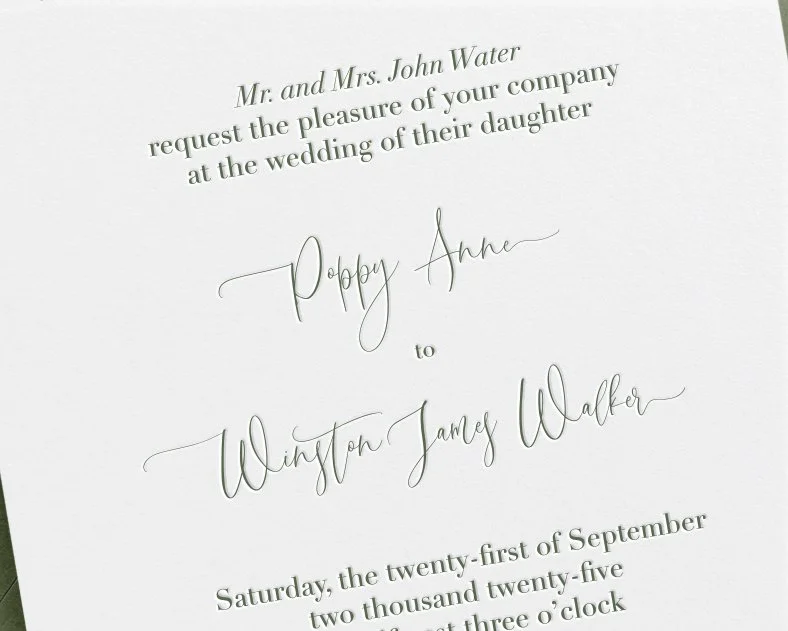 Mr. and Mrs. John Water
request the pleasure of your company
at the wedding of their daughter
Poppy Anne
to
Winston James Walker
Saturday, the twenty-first of September
two thousand twenty-five
past three o’clock